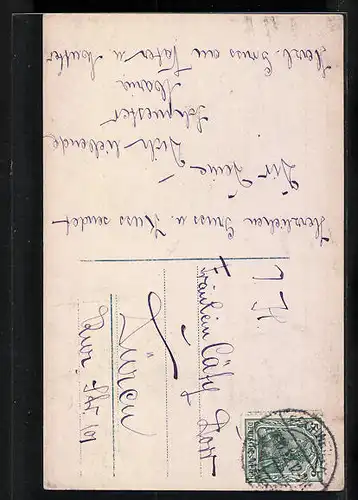 Herzlichen Gruss u. Kuss sendet
Dir Deine
Dich liebende
Schwester
Maria
Herzl. Gruss an Vater u. Mutter
Fräulein Cäty
Düren